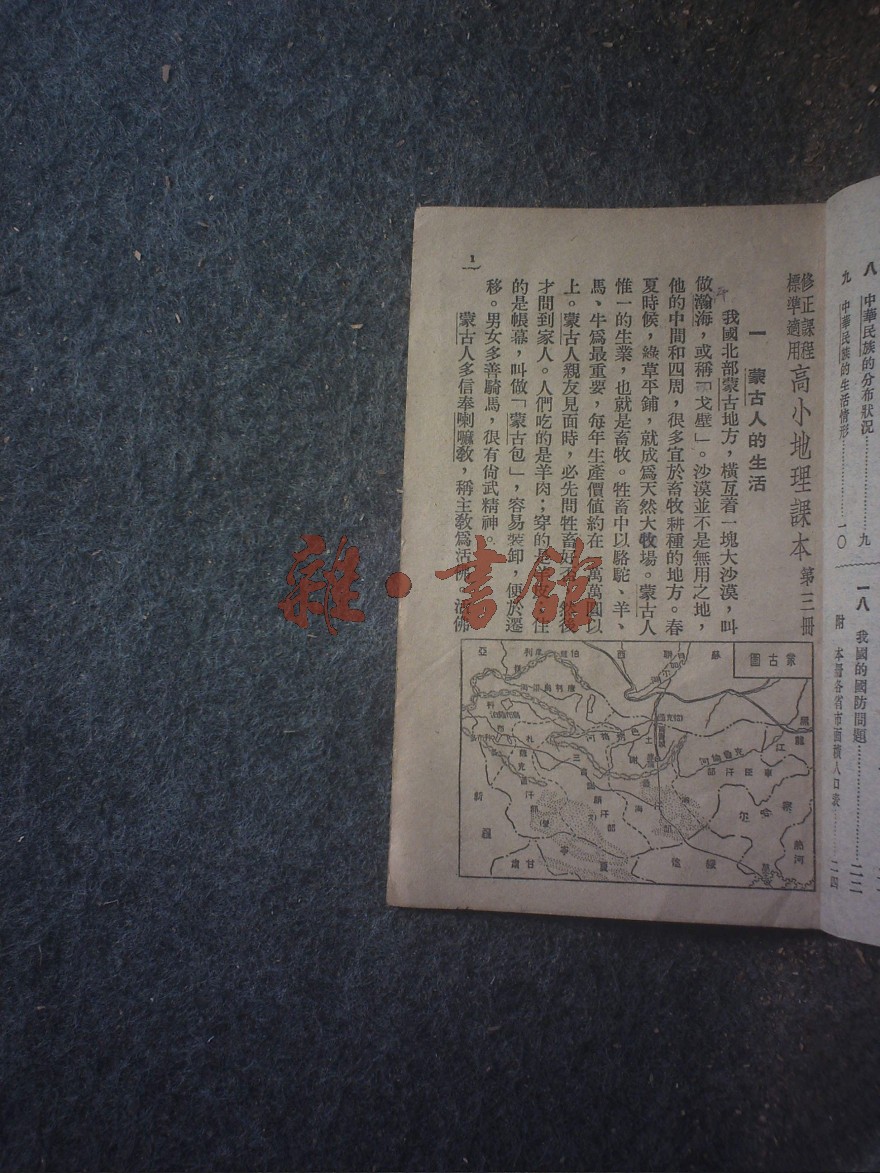 八 中華民族的分布狀況 九
九 中華民族的生活情形 一〇
一八 我國的國防問題 二二
附 本冊各省市面積人口表 二四
修正課程
標準適用
高小地理課本 第三冊
一 蒙古人的生活
我國北部蒙古地方，橫亙着一塊大沙漠，叫
做瀚海，或稱「戈壁」。沙漠並不是無用之地，
他的中間和四周，很多宜於畜牧耕種的地方。春
夏時候，綠草平鋪，就成爲天然大牧場。蒙古人
惟一的生業，也就是畜牧。牲畜中以駱駝、羊、
馬、牛爲最重要，每年生產價值約在一萬萬圓以
上。蒙古人親友見面時，必先問牲畜好否，然後
才問到家人。人們吃的是羊肉；穿的是羊皮；住
的是帳幕，叫做「蒙古包」，容易裝卸，便於遷
移。男女多善騎馬，很有尙武精神。
蒙古人多信奉喇嘛敎，稱主敎爲活佛。活佛
1
蒙古圖
黑龍江
熱河
新疆
甘肅
寧夏
綏遠
察哈爾
車臣汗部
土謝圖汗部
雜·書館